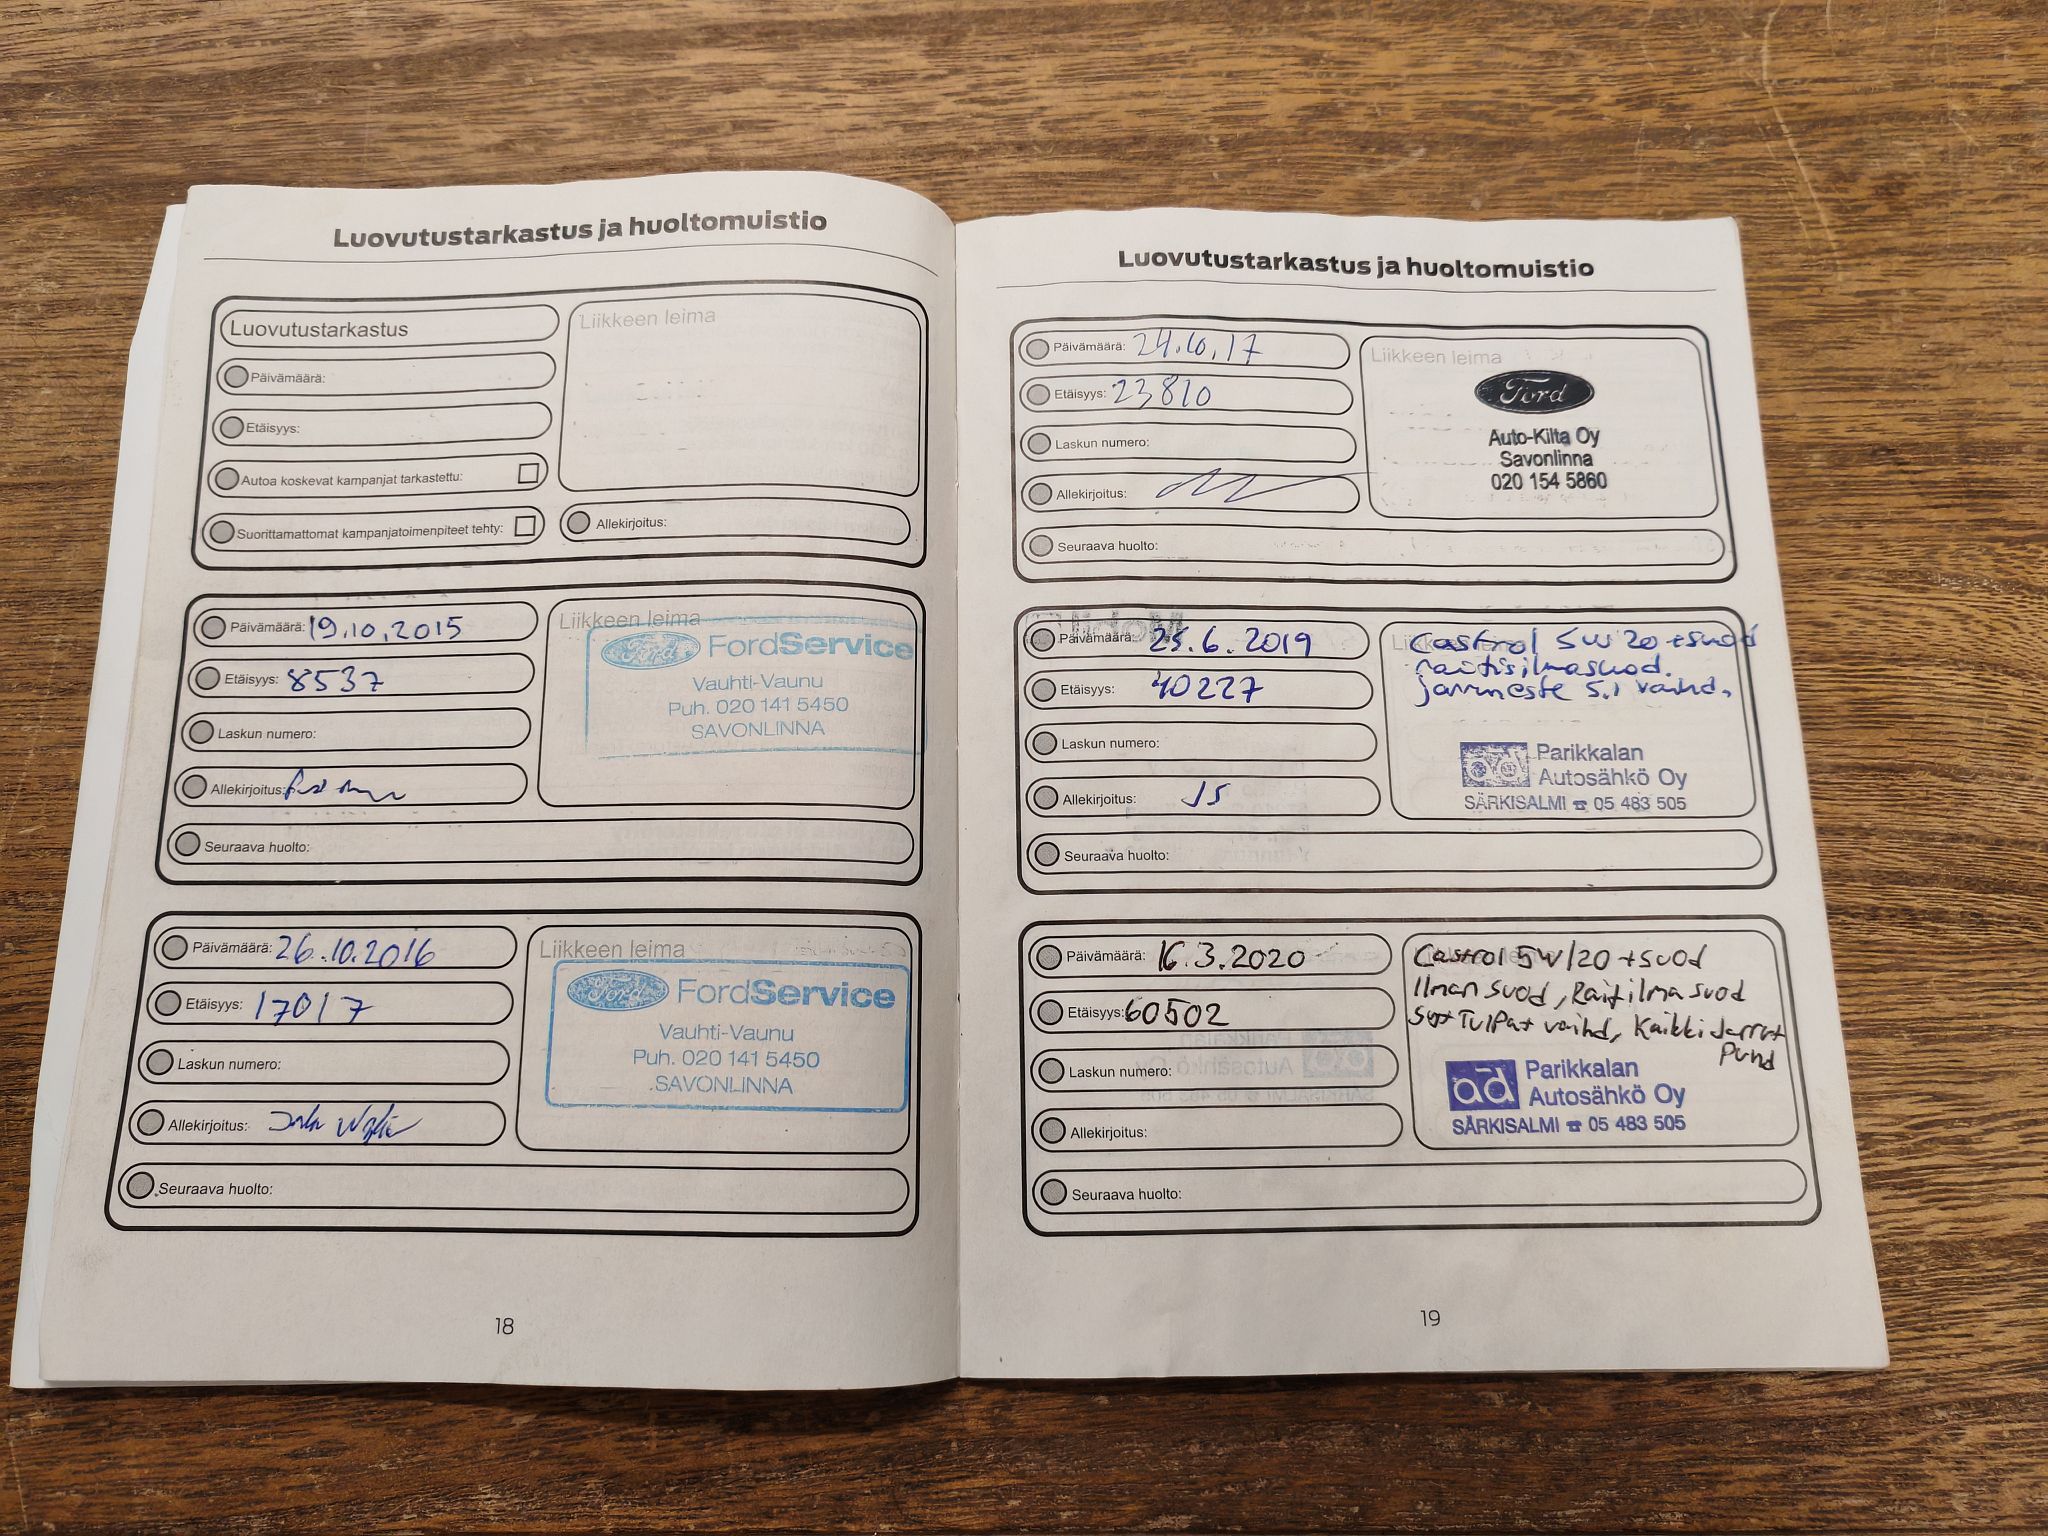 Luovutustarkastus ja huoltomuistio
Luovutustarkastus
Liikkeen leima
Päivämäärä:
Etäisyys:
Autoa koskevat kampanjat tarkastettu:
Suorittamattomat kampanjatoimenpiteet tehty:
Allekirjoitus:
Päivämäärä: 19.10.2015
Etäisyys: 8537
Laskun numero:
Allekirjoitus:
Liikkeen leima
Ford FordService
Vauhti-Vaunu
Puh. 020 141 5450
SAVONLINNA
Seuraava huolto:
Päivämäärä: 26.10.2016
Etäisyys: 17017
Laskun numero:
Allekirjoitus:
Liikkeen leima
Ford FordService
Vauhti-Vaunu
Puh. 020 141 5450
SAVONLINNA
Seuraava huolto:
18
Luovutustarkastus ja huoltomuistio
Päivämäärä: 24.10.17
Etäisyys: 23810
Laskun numero:
Allekirjoitus:
Liikkeen leima
Ford
Auto-Kilta Oy
Savonlinna
020 154 5860
Seuraava huolto:
Päivämäärä: 25.6.2019
Etäisyys: 40227
Laskun numero:
Allekirjoitus: JS
Castrol 5W20 +suod
raitisilmasuod.
jarruneste 5.1 vaihd.
ad Parikkalan
Autosähkö Oy
SÄRKISALMI ☎ 05 483 505
Seuraava huolto:
Päivämäärä: 16.3.2020
Etäisyys: 60502
Laskun numero:
Allekirjoitus:
Castrol 5W/20 +suod
Ilman suod, Raitilma suod
TulPat vaihd, Kaikki Jarrut
Puhd
ad Parikkalan
Autosähkö Oy
SÄRKISALMI ☎ 05 483 505
Seuraava huolto:
19